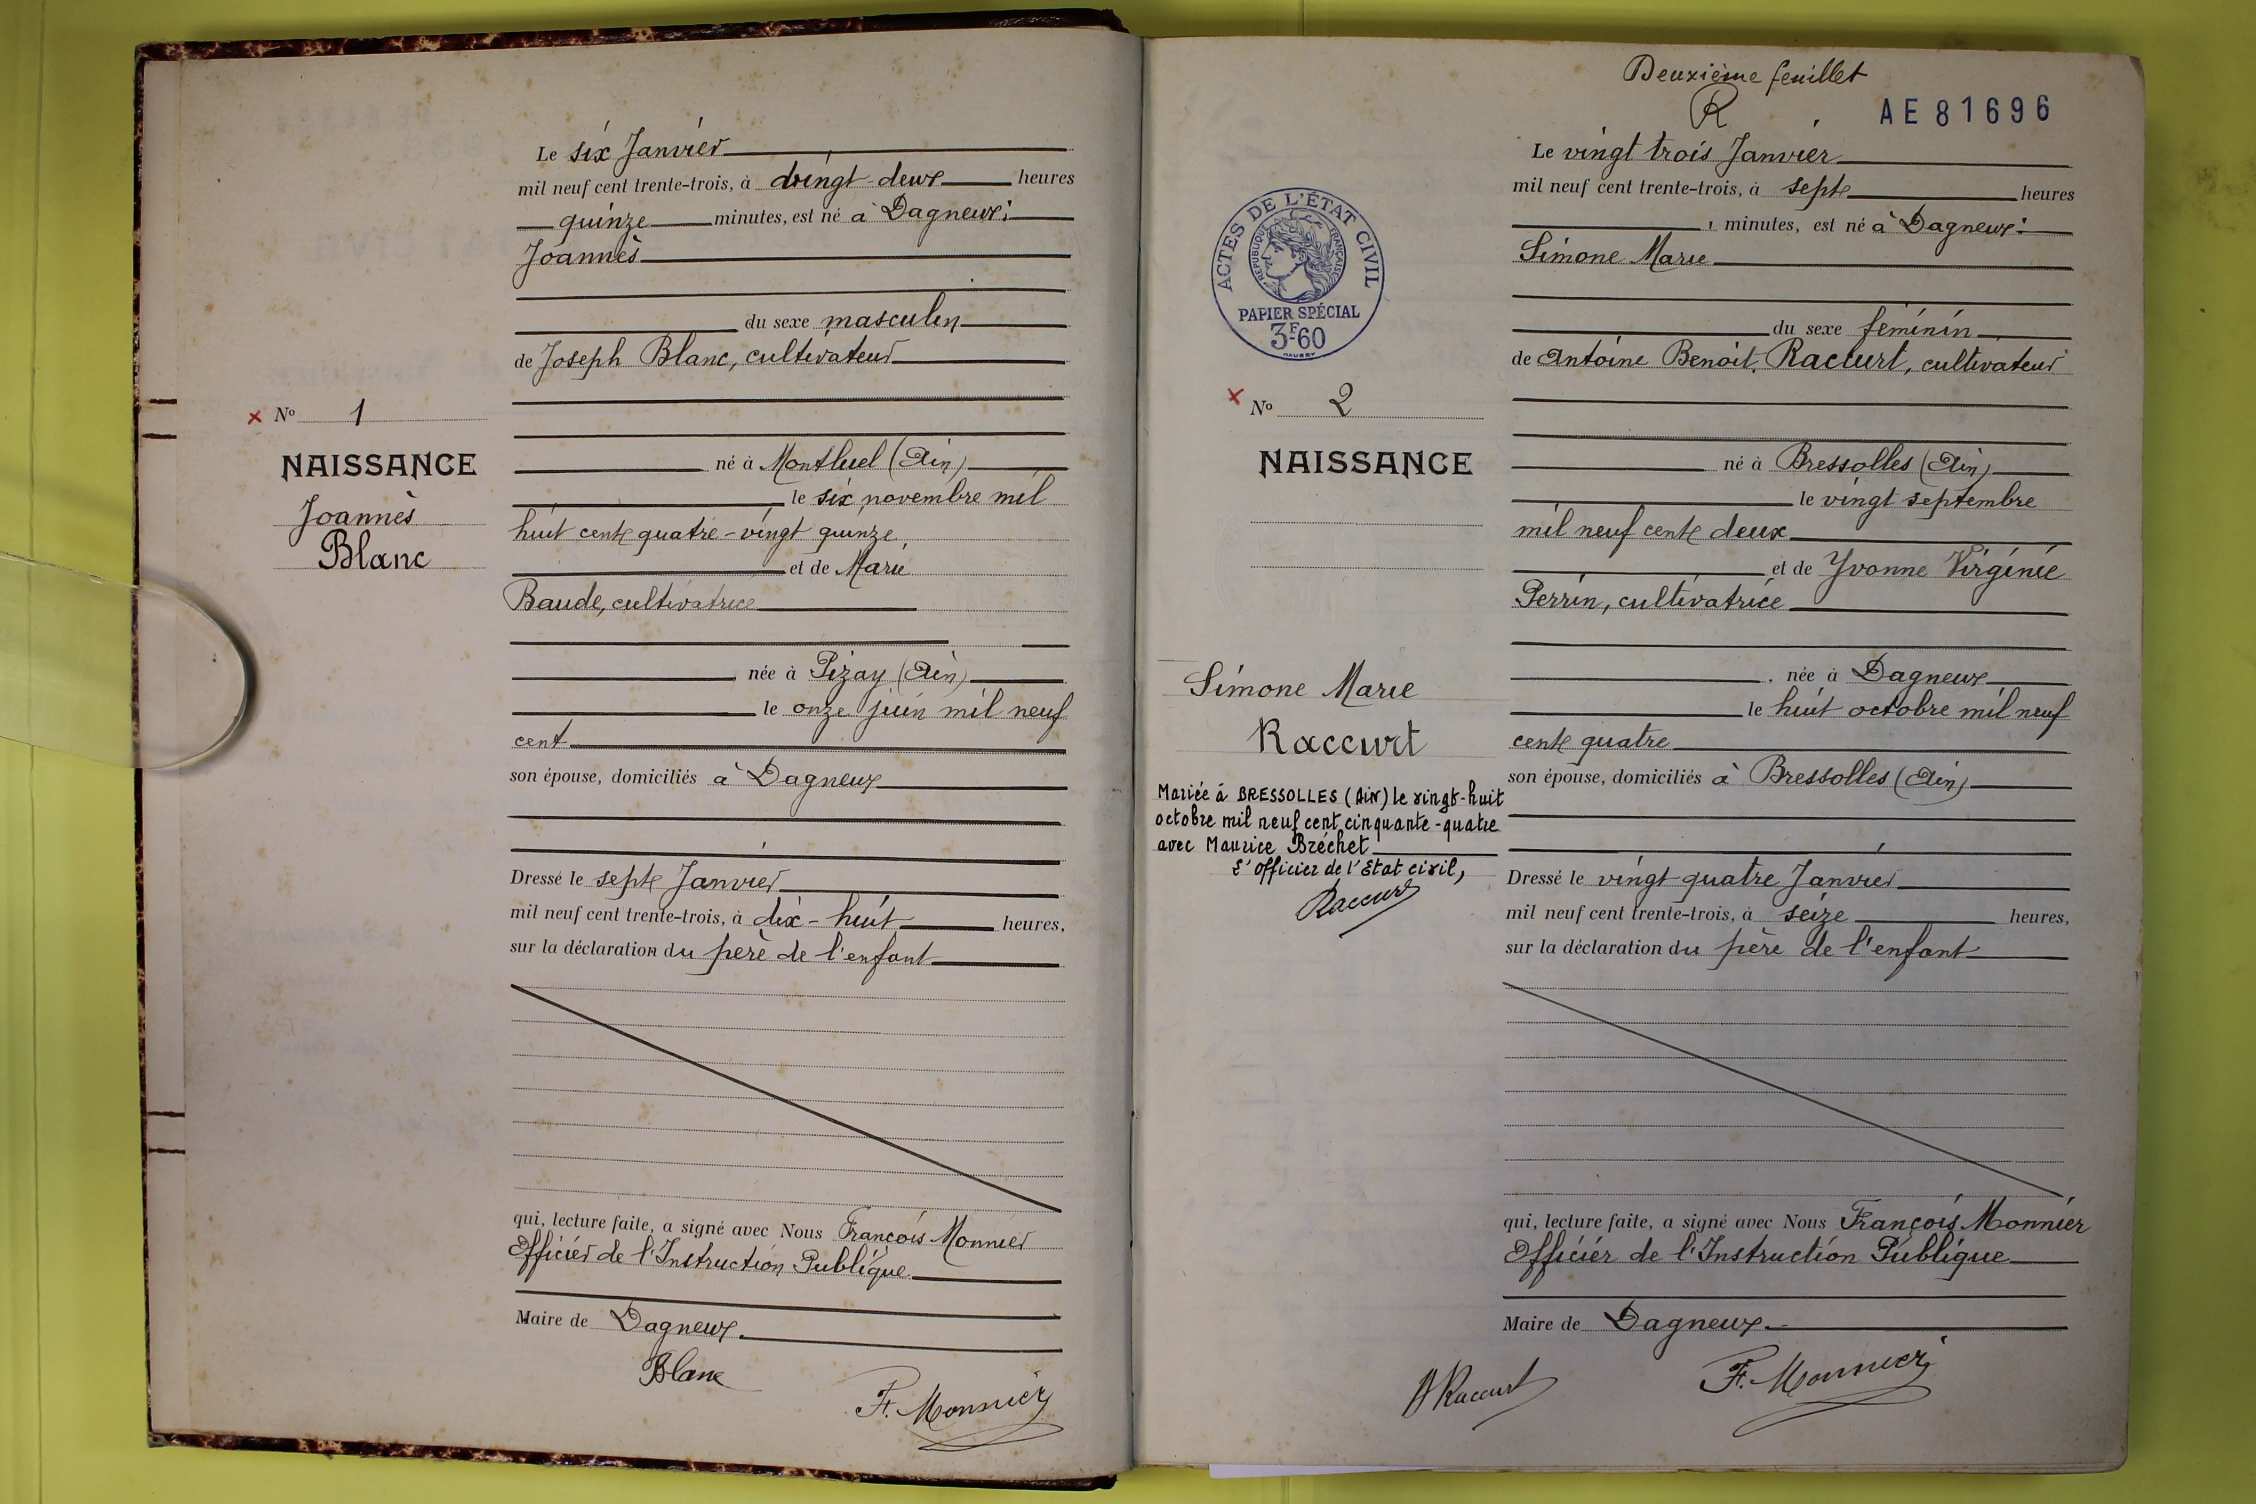 Le six Janvier
mil neuf cent trente-trois, à vingt-deux heures
quinze minutes, est né à Dagneux:
Joannès
du sexe masculin
de Joseph Blanc, cultivateur
né à Montluel (Ain)
le six novembre mil
huit cent quatre-vingt quinze,
et de Marie
Baude, cultivatrice
née à Pizay (Ain)
le onze juin mil neuf
cent
son épouse, domiciliés à Dagneux
Dressé le sept Janvier
mil neuf cent trente-trois, à dix-huit heures,
sur la déclaration du père de l'enfant
qui, lecture faite, a signé avec Nous François Monnier
Officier de l'Instruction Publique
Maire de Dagneux.
Blanc
F. Monnier
No 1
NAISSANCE
Joannès
Blanc
Deuxième feuillet
R
AE 81696
Le vingt trois Janvier
mil neuf cent trente-trois, à sept heures
minutes, est né à Dagneux:
Simone Marie
du sexe féminin
de Antoine Benoit Raccurt, cultivateur
né à Bressolles (Ain)
le vingt septembre
mil neuf cent deux
et de Yvonne Virginie
Perrin, cultivatrice
née à Dagneux
le huit octobre mil neuf
cent quatre
son épouse, domiciliés à Bressolles (Ain)
Dressé le vingt quatre Janvier
mil neuf cent trente-trois, à seize heures,
sur la déclaration du père de l'enfant
qui, lecture faite, a signé avec Nous François Monnier
Officier de l'Instruction Publique
Maire de Dagneux.
A Raccurt
F. Monnier
ACTES DE L'ÉTAT CIVIL
RÉPUBLIQUE FRANÇAISE
PAPIER SPÉCIAL
3F60
No 2
NAISSANCE
Simone Marie
Raccurt
Mariée à BRESSOLLES (Ain) le vingt-huit
octobre mil neuf cent cinquante-quatre
avec Maurice Bréchet
L'officier de l'Etat civil,
Raccurt